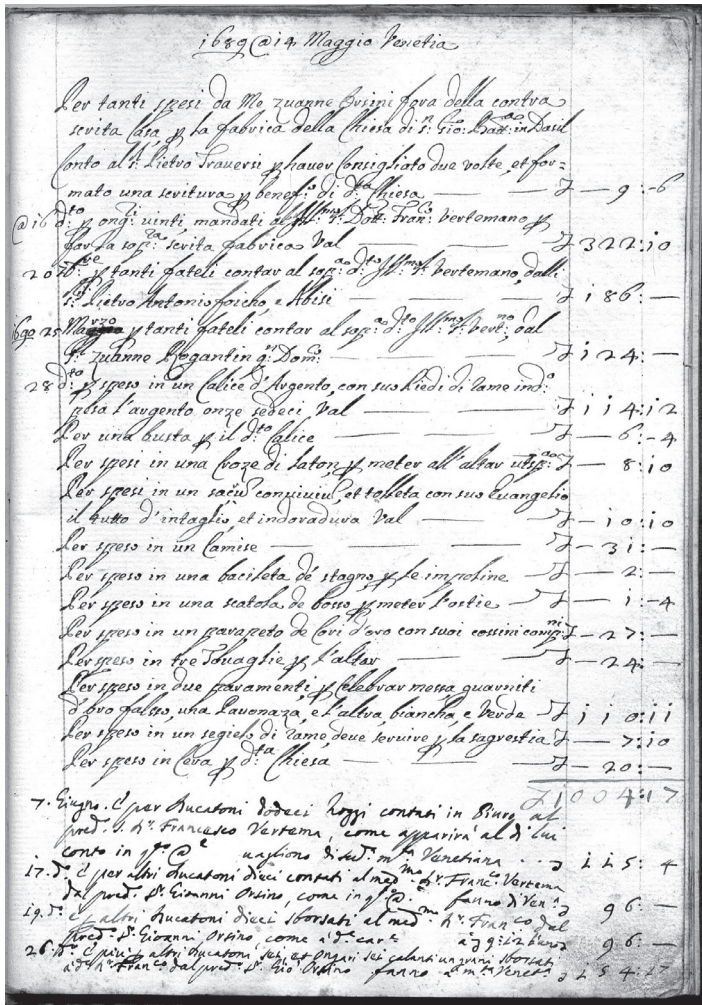 1689 @ 14 Maggio Venetia
Per tanti spesi da Mo Zuanne Orsini fora della contra
scrita Casa, p la fabrica della Chiesa di S.n Gio: Batt.a in Basil
Conto al S.r Pietro Traversi p haver Consigliato due volte, et for=
mato una scritura p benef.o di d.ta Chiesa — £ — 9 :- 6
@ 16 d.to p ong.i vinti mandati al Ill.mo S.r Dott.r Fran.co Vertemano p
far la sop.ra scrita fabrica Val — £ 322 : 10
20 p tanti fateli contar al sop.o d.to Ill.mo S.r Vertemano, dalli
S.ri Pietro Antonio foicho e Abisi — £ 186 : —
1690 25 Marzo p tanti fateli contar al sop.o d.to Ill.mo S.r Vert.no, dal
S.r Zuanne Pogantin q.m Dom.o — £ 124 : —
28 d.to p speso in un Calice d'Argento, con suo Piedi di rame ind.o
pesa l'argento onze sedeci Val — £ 114 : 12
Per una busta p il d.to Calice — £ — 6 : - 4
Per spesi in una Croze di laton, p meter all'altar — £ — 8 : 10
Per spesi in un et tolleta con suo Evangelio
il tutto d'intaglio, et indoradura Val — £ — 10 : 10
Per speso in un Camise — £ — 31 : —
Per speso in una bacileta de stagno, p le impoline — £ — 2 : —
Per speso in una scatola de bosso p meter l'ostie — £ — 1 : - 4
Per speso in un parapeto de Cori d'oro con suoi cossini comp.ni £ — 27 : —
Per speso in tre Tovaglie p l'altar — £ — 24 : —
Per speso in due paramenti p Celebrar messa guarniti
d'oro falsso, una Pavonaza, e l'altra biancha, e Verde £ 110 : 11
Per speso in un segielo di rame, deve servire p la sagrestia £ — 7 : 10
Per speso in Cera p d.ta Chiesa — £ — 20 : —
£ 1004 : 17
7. Giugno. E per Ducatoni dodeci Rozzi contati in Biuro al
pred. S. Francesco Vertema, come apparirà al di lui
conto in q.o @ vagliono di sud.a m.ta Venetiana 115 4
17. d.o E per altri Ducatoni dieci contati al med.mo S.r Franc.o Vertema
dal pred. S.r Gioanni Orsino, come in q.o @ fanno di Ven.a 96 —
19. d.o E p altri Ducatoni dieci sborsati al med.mo S.r Fran.co dal
pred.o S.r Gioanni Orsino, come à d.e car.te 96 —
26 d.o E più p altri Ducatoni sei, et Ongari sei calanti un grani sborsati
à d.o S.r Fran.co dal pred.o S.r Gio. Orsino fanno m.ta Venet.a